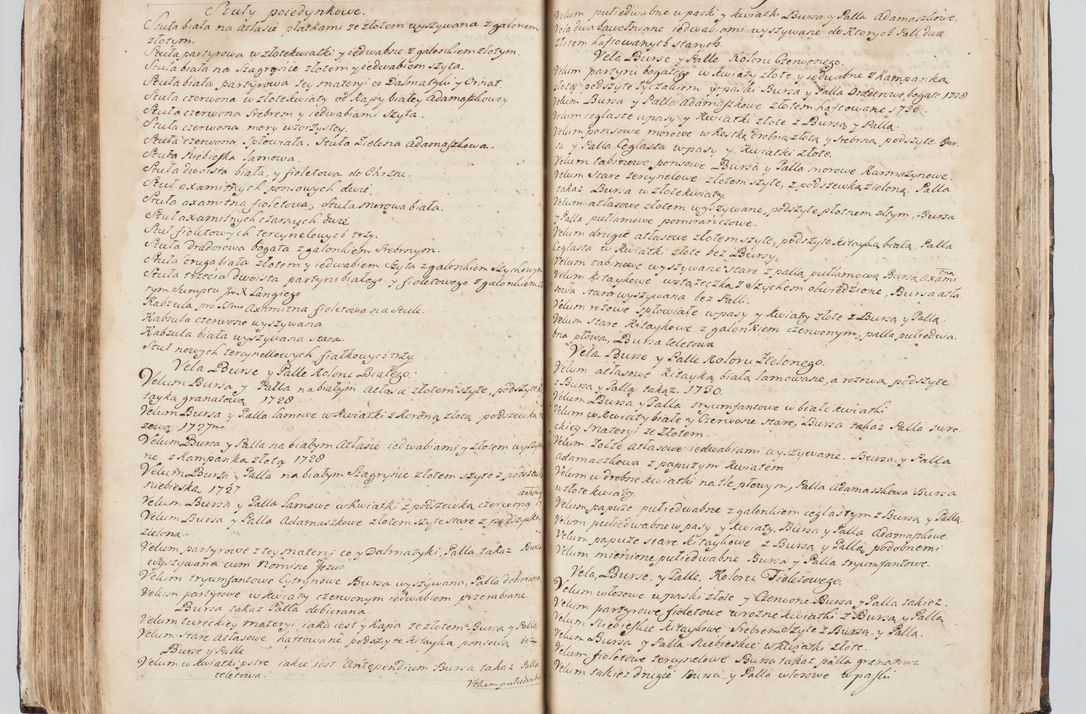 Stuły poiedynkowe.
Stuła biała na atłasie płatkami ze złotem wyszywana z galonem
złotym.
Stuła partyrowa w złote kwiatki y iedwabne z galonkiem złotym.
Stuła biała na Szagrysie złotem y iedwabiem szyta.
Stuła biała partyrowa tey materyi co Dalmatyki y Ornat.
Stuła czerwona w złote kwiaty od kapy białey adamaszkowey
Stuła czerwona srebrem y iedwabiami szyta.
Stuła czerwona mory wzorzystey.
Stuła czerwona spłowiała, Stuła zielona adamaszkowa.
Stuła niebieska lamowa.
Stuła dwoista biała, y fioletowa do Chrztu.
Stuł axamitnych ponsowych dwie.
Stuła axamitna fioletowa, Stuła morowa biała.
Stuł axamitnych czarnych dwie
Stuł fioletowych tercynelowych trzy.
Stuła dradorowa bogata z galonkiem srebrnym.
Stuła druga biała złotem y iedwabiem szyta z galonkiem szychowym
Stuła trzecia dwoista partyru białego y fioletowego z galonkiem
tym Sumptu X Langiego
Kabzula axamitna fioletowa na Stule.
Kabzula czerwono wyszywana
Kabzula biała wyszywana stara.
Stuł nowych tercynellowych fiałkowych trzy
Vela Burse y Palle Koloru Białego.
Velum Bursa y Palla na białym atłasie złotem szyte, podszyte
tayką granatową 1728
Velum Bursa y Palla lamowe w kwiatki z koroną złotą podszewka
zowa 1727
Velum Bursa y Palla na białym Atłasie iedwabiami y złotem wyszy
ne z kampanką złotą 1728
Velum Bursa y Palla na białym Szagrysie złotem szyte z podszew
niebieską 1727
Velum Bursa y Palla lamowe w kwiatki z podszewką czerwoną
Velum Bursa y Palla Adamaszkowe złotem szyte stare z podszewką
zieloną
Velum partyrowe z tey materyi co y Dalmatyki, Palla takaż Bursa
wyszywana cum Nomine Jezus
Velum tryumfantowe Cytrynowe Bursa wyszywana, Palla dobierana
Velum partyrowe w kwiaty czerwonym iedwabiem przerabiane
Bursa takaż Palla dobierana.
Velum tureckiey materyi iaka iest y kapa ze złotem Bursa y Palla
Velum stare Atłasowe haftowane podszyte kitayką ponsową bez
Burse y Palle
Velum w kwiatki pstre iakie iest Antependium Bursa takaż Palla
teletowa.
Velum pułiedwabne
Velum pułiedwabne w paski y kwiatki Bursa y Palla Adamaszkowe.
Vela dwa bawełniane iedwabiami wyszywane do ktorych Pall dwie
złotem haftowanych starych.
Vela Burse y Palle Koloru Czerwonego.
Velum partyru bogatego w kwiaty złote y iedwabne z kampanką
złotą podszyte w paski Bursa y Palla bogate 1728
Velum Bursa y Palla adamaszkowe złotem haftowane 1736
Velum ceglaste w pasy y kwiatki złote z Bursą y Pallą.
Velum ponsowe morowe w kostkę drobną złotą y srebrną, podszyte Bur
sa y Palla Ceglasta w pasy y kwiatki złote.
Velum tabinowe ponsowe Bursa y Palla morowe Karmazynowe.
Velum stare tercynelowe złotem szyte, z podszewką zieloną Palla
takaż Bursa w złote kwiaty
Velum atłasowe złotem wyszywane, podszyte płotnem żłtym, Bursa
y Palla pułlamowe pomorańczowe.
Velum drugie atłasowe złotem szyte, podszyte kitayką białą, Palla
Ceglasta w kwiatki złote bez Bursy,
Velum tabinowe wyszywane stare z pallą pułlamową Bursa axamitna
Velum kitaykowe wstążeczką z szychem obwiedzione, Bursa atła
sowa stara wyszywana bez Palli.
Velum rożowe spłowiałe w pasy y kwiaty złote z Bursą y Pallą.
Velum stare kitaykowe z galonkiem czerwonym, palla pułiedwa
bna płowa, Bursa teletowa
Vela Burse y Palle Koloru Zielonego.
Velum atłasowe kitayką białą lamowane, a rozową podszyte
z Bursą y Pallą takąż. 1730.
Velum Bursa y Palla tryumfantowe w białe kwiatki
Velum w kwiaty białe y Czerwone stare, Bursa takaż Palla ture
ckiey materyi ze złotem.
Velum żołte atłasowe iedwabiami wyszywane. Bursa y Palla
Adamaszkowa z papużym kwiatem
Velum w drobne kwiatki na tle płowym, Palla Adamaszkowa Bursa
w złote kwiaty.
Velum papuze pułiedwabne z galonkiem ceglastym z Bursą y Pallą.
Velum pułiedwabne w pasy y kwiaty, Bursa y Palla Adamaszkowe.
Velum papuże stare kitaykowe z Bursą y Pallą podobnemi
Velum mienione pułiedwabne Bursa y Palla tryumfantowe.
Vela, Burse, y Palle, Koloru Fioletowego.
Velum włosowe w paski złote y Czerwone Bursa y Palla takież.
Velum partyrowe fioletowe w rożne kwiatki z Bursą y Pallą
Velum niebieskie kitaykowe srebrem szyte z Bursą y Pallą.
Velum Bursa y Palla niebieskie w kwiatki złote.
Velum fioletowe tercynelowe Bursa takaż palla granatowa
Velum takież drugie Bursa y Palla włosowe w paski